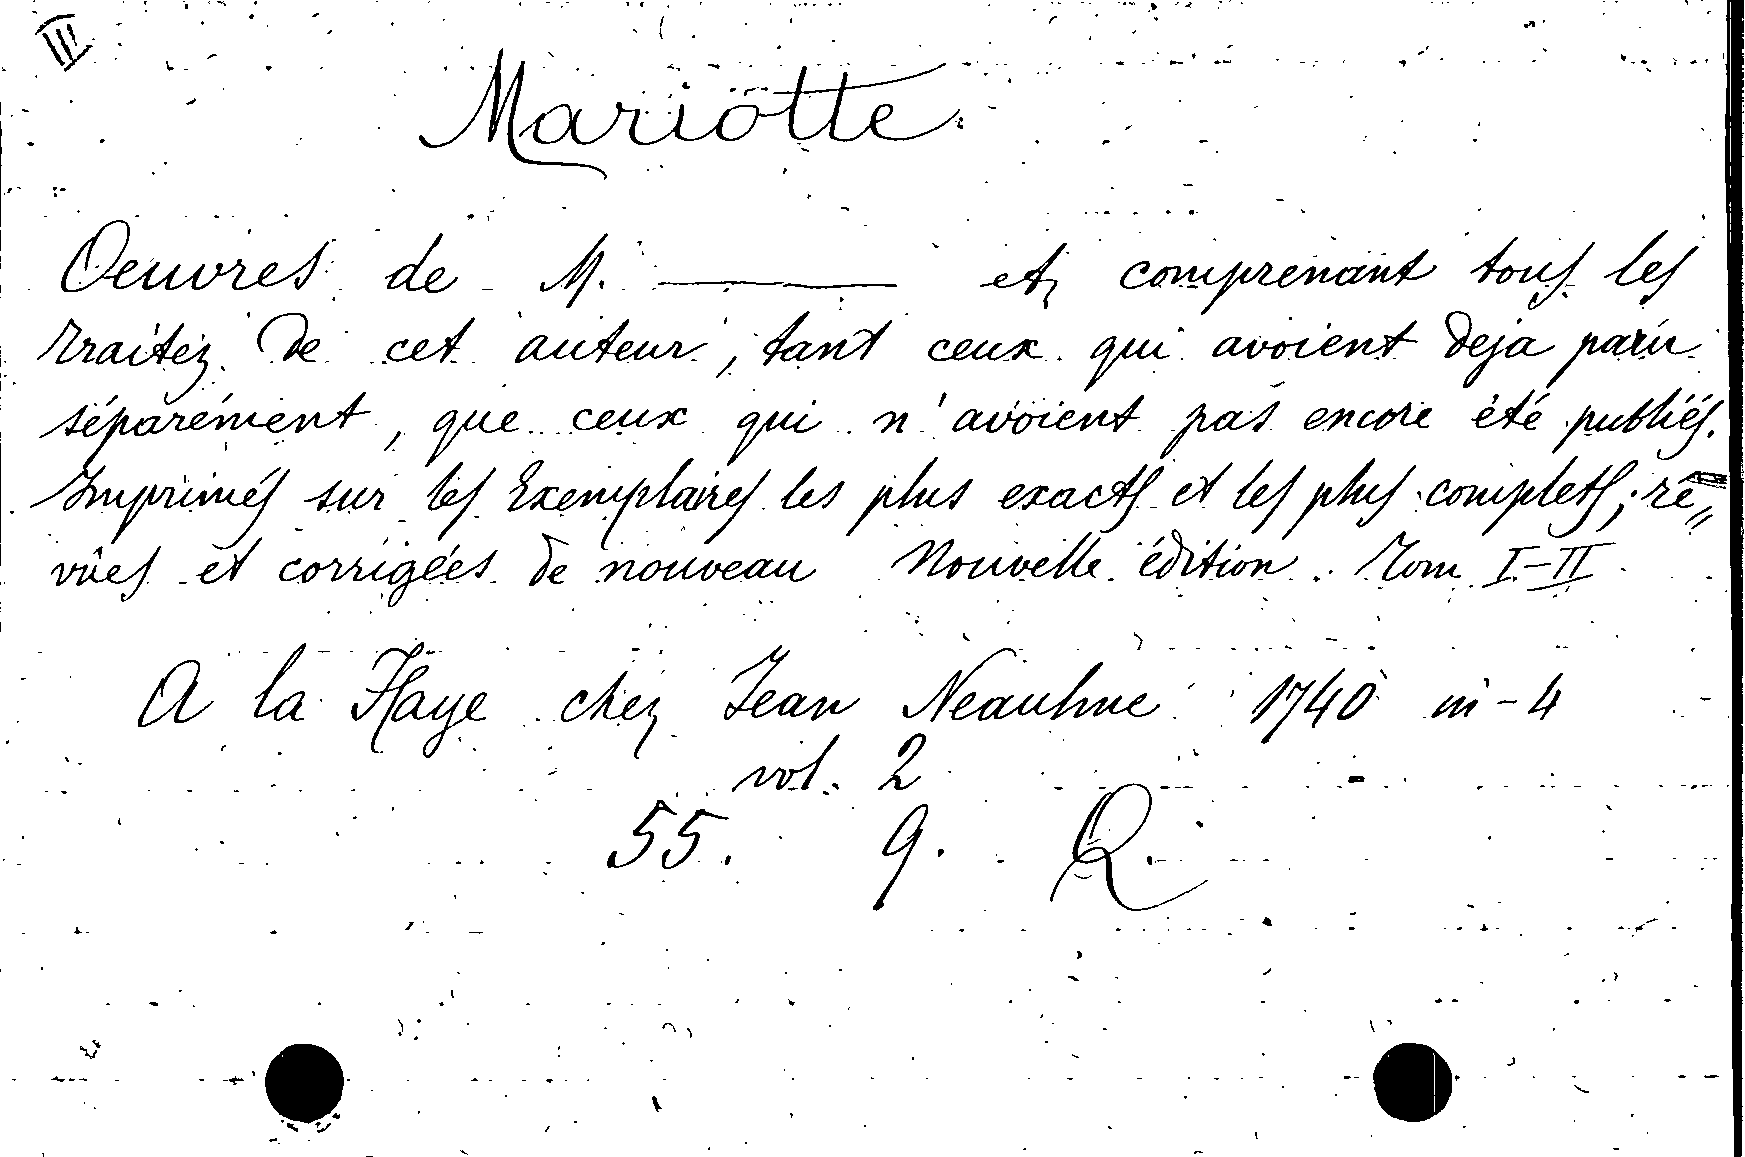 III
Mariotte.
Oeuvres de M. ——— et, comprenant tous les
traitez de cet auteur, tant ceux qui avoient deja paru
séparément, que ceux qui n'avoient pas encore été publiés.
Imprimés sur les Exemplaires les plus exacts et les plus complets; re„
vûes et corrigées de nouveau Nouvelle édition. Tom I-II
A la Haye chez Jean Neaulme 1740 in-4
vol. 2
55. 9. Q.